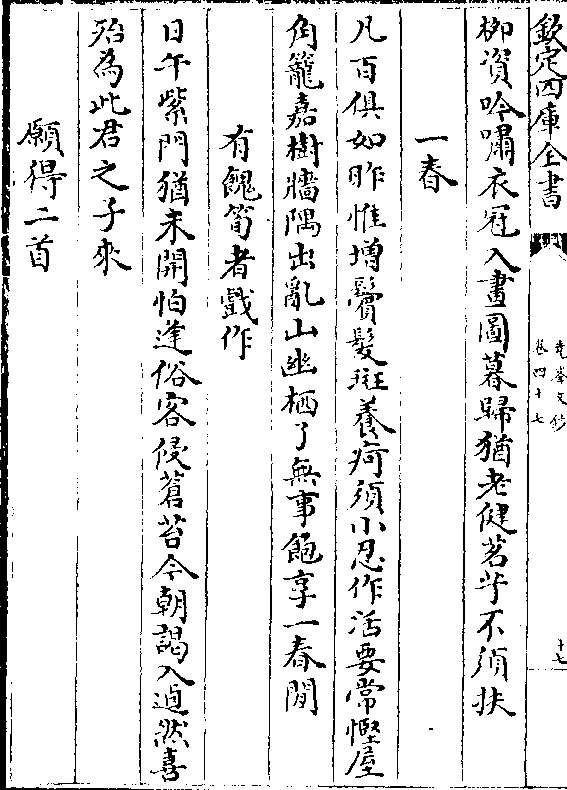 欽定四庫全書
堯峯文鈔
卷四十七
十七
栁資吟嘯衣冠入畫圖暮歸猶老健茗艼不須扶
一春
凡百俱如昨惟增鬢髮斑養疴須小忍作活要常慳屋
角籠嘉樹牆隅出亂山幽栖了無事飽享一春閒
有餽筍者戲作
日午紫門猶未開怕逢俗客侵蒼苔今朝謁入逌然喜
殆為此君之子來
願得二首